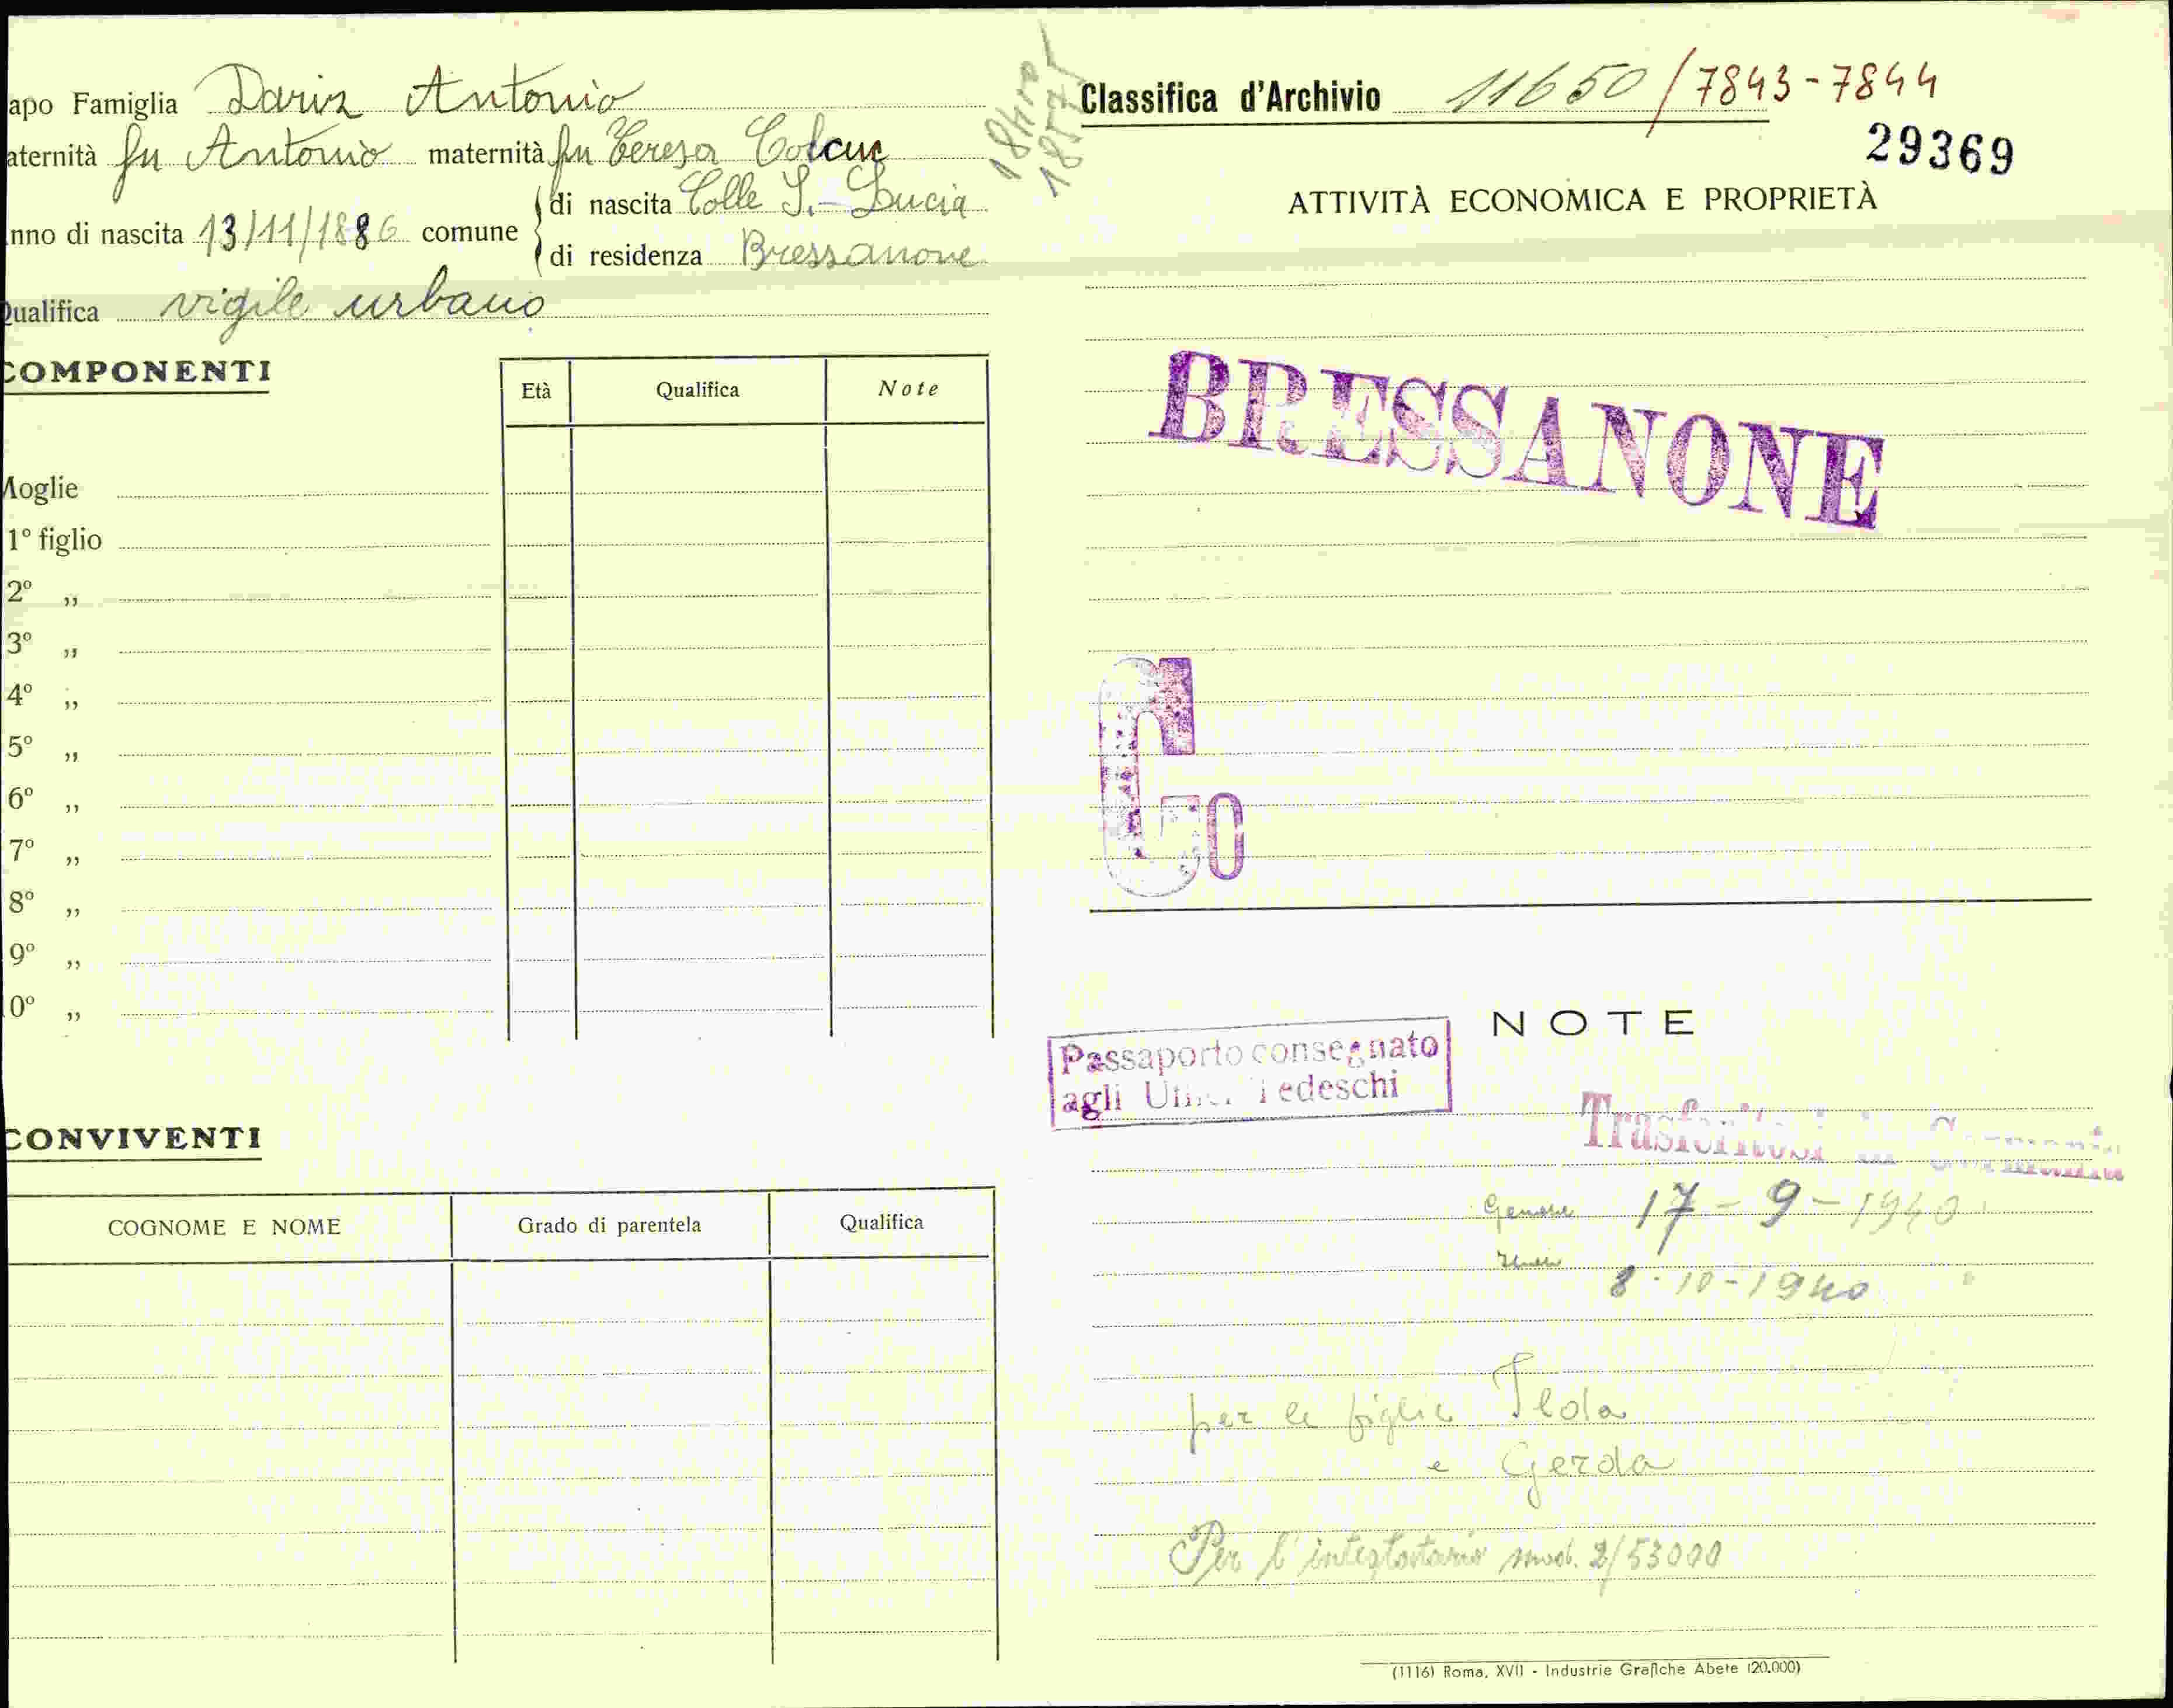 apo Famiglia Dariz Antonio
aternità fu Antonio maternità fu Teresa Colcuc
nno di nascita 13/11/1886 comune
di nascita Colle S. Lucia
di residenza Bressanone
Qualifica vigile urbano
COMPONENTI
Età Qualifica Note
Moglie
1° figlio
2° „
3° „
4° „
5° „
6° „
7° „
8° „
9° „
0° „
CONVIVENTI
COGNOME E NOME Grado di parentela Qualifica
Classifica d'Archivio 11650/7843-7844
29369
ATTIVITÀ ECONOMICA E PROPRIETÀ
BRESSANONE
NOTE
Passaporto consegnato
agli Uffici Tedeschi
Trasferitosi in Germania
17-9-1940
8-10-1940
per le figlie Ilda
e Gerda
Per l'intestatario mod. 2/53000
(1116) Roma, XVII - Industrie Grafiche Abete (20.000)